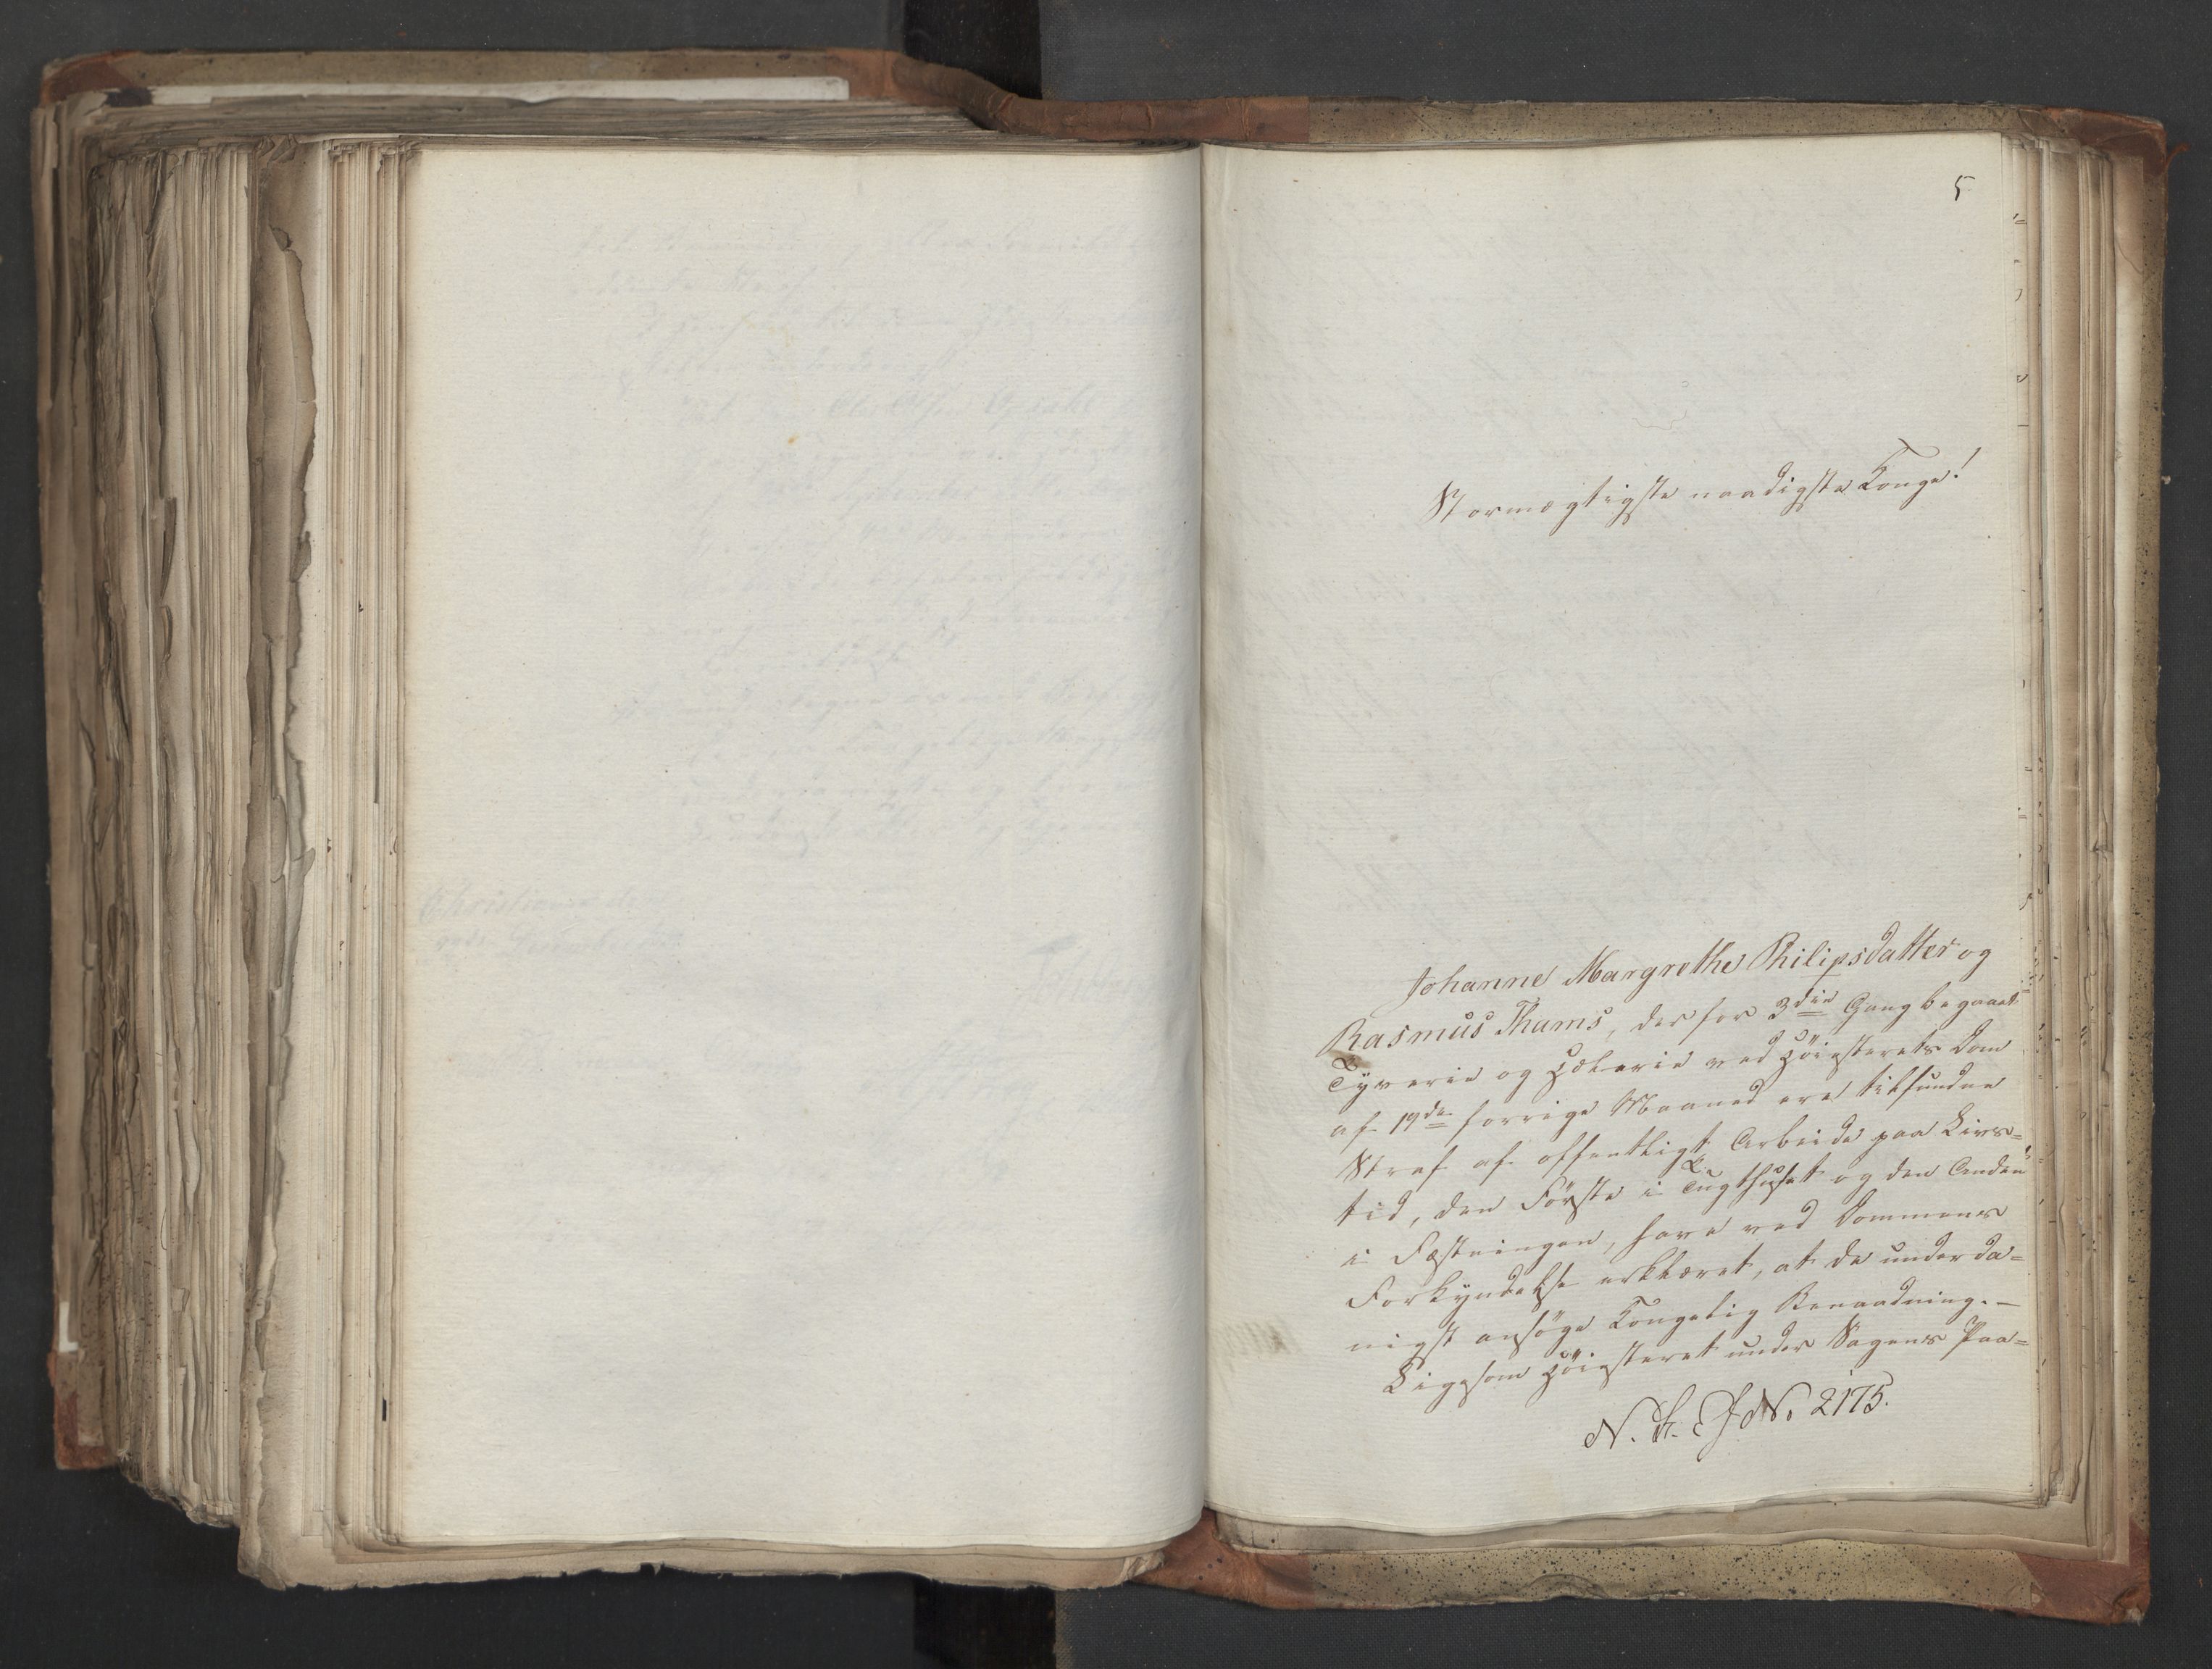 5
Stormægtigste naadigste Konge!
Johanne Margrethe Philipsdatter og
Rasmus Thams, der for 3die Gang begaaet
Tyverie og Hæleri ved Höiesterets Dom
af 19de forrige Maaned ere tilfundne
Straf af offentligt Arbeide paa Livs=
tid, den Förste i Tugthuset og den Anden
i Fæstningen, have ved Dommens
Forkyndelse erklæret, at de underda=
nigst ansöge Kongelig Benaadning. —
Ligesom Höiesteret under Sagens Paa=
No 2175.